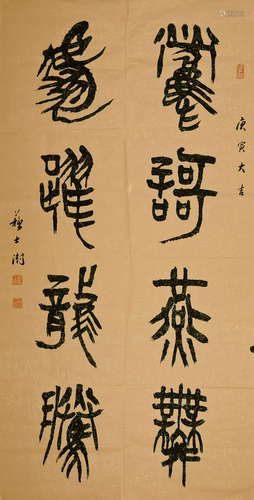 庚寅大吉
鶯謌燕舞
躍龍騰
蘇士澍